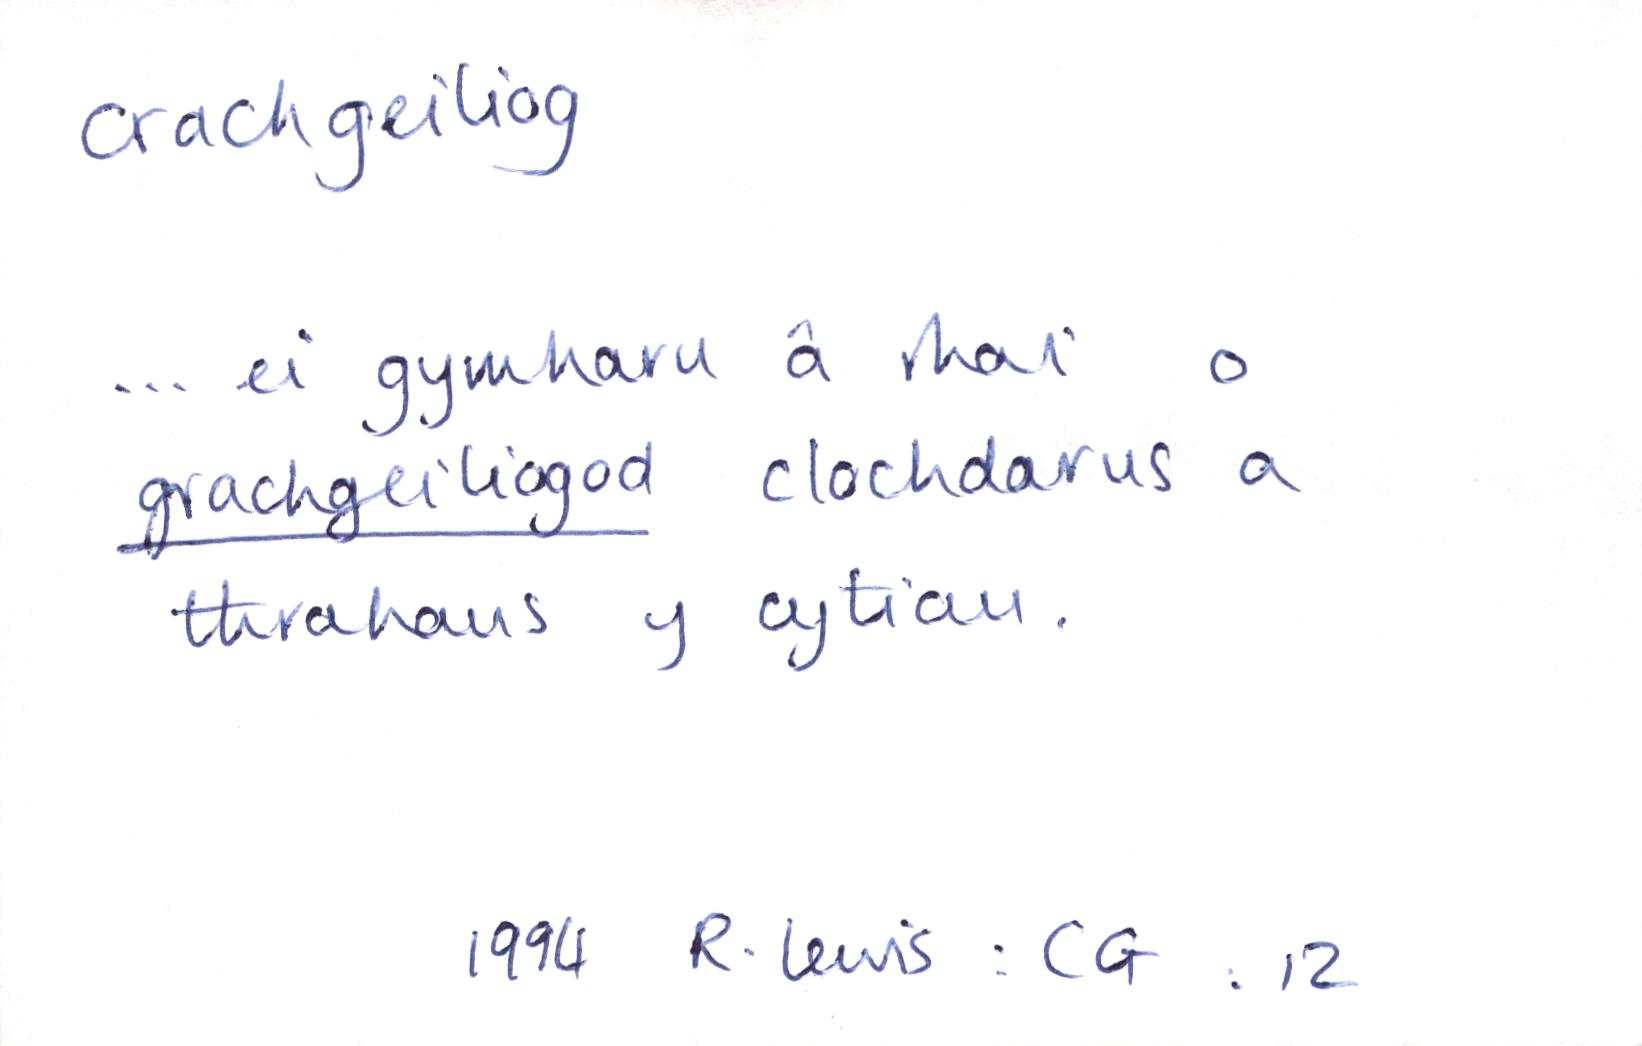 crachgeiliog
... ei gymharu â rhai o
grachgeiliogod clochdarus a
thrahaus y cytiau.
1994 R. Lewis : CG : 12